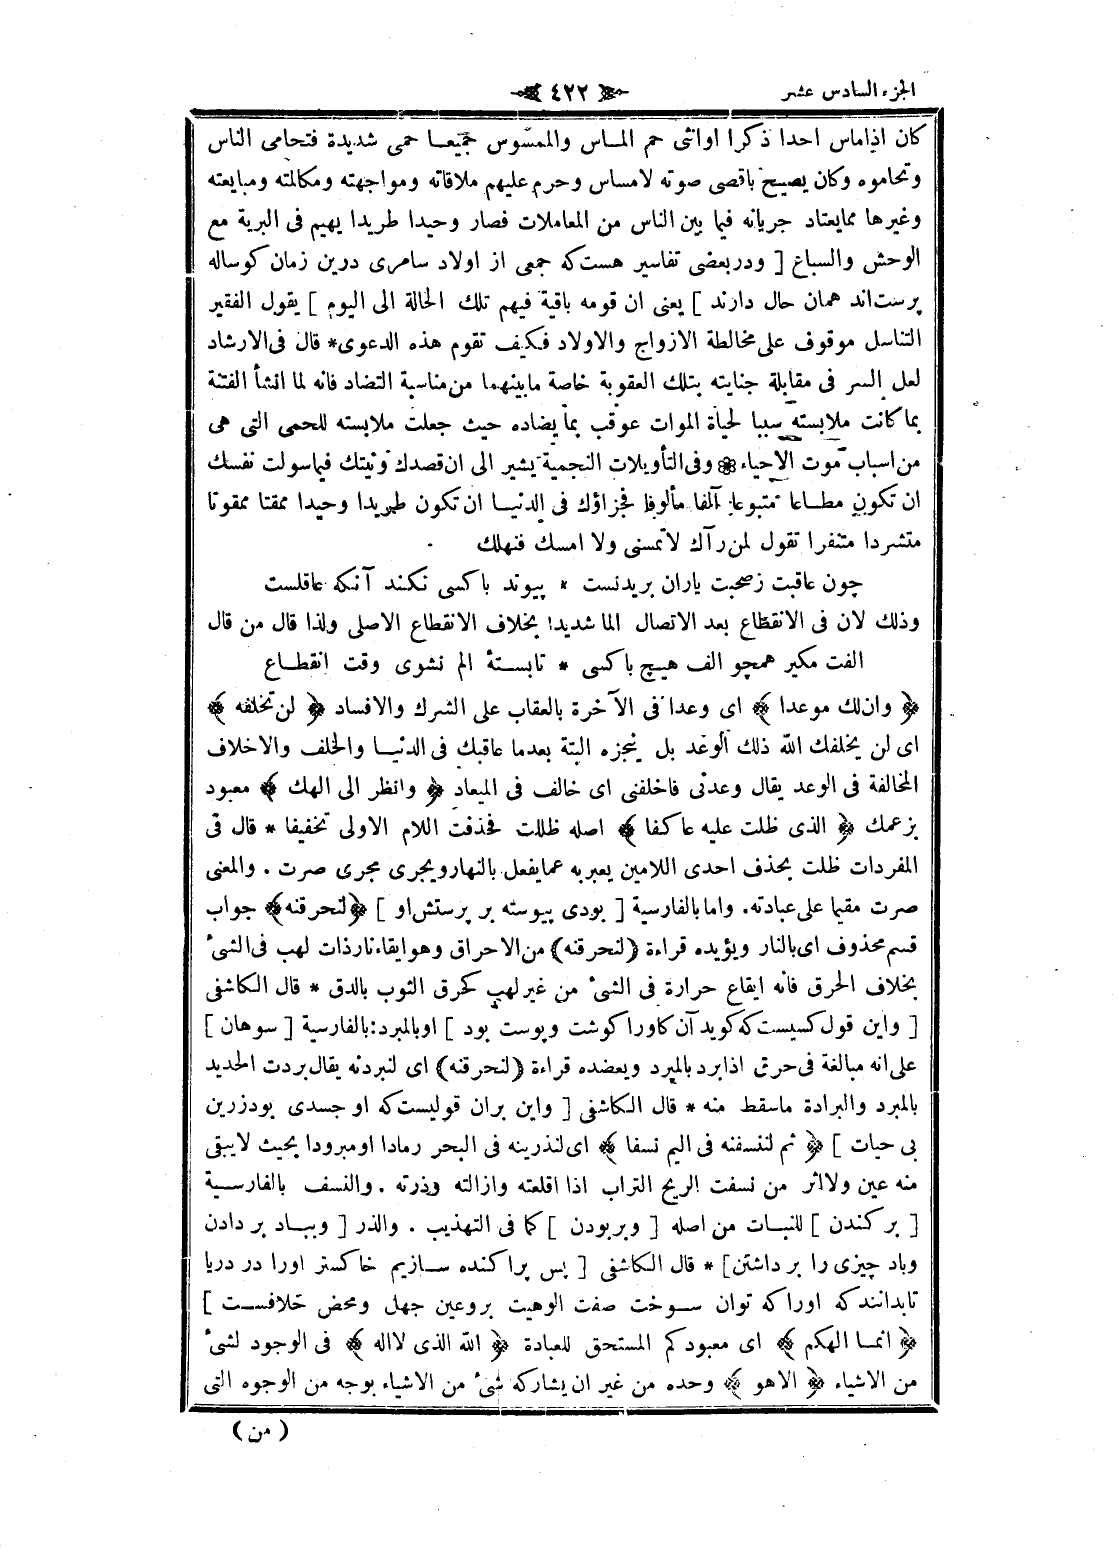 الجزء السادس عشر
٤٢٢
كان اذاماس احدا ذكرا اوانثى حم الماس والممسوس جميعا حمى شديدة فتحامى الناس
وتحاموه وكان يصيح باقصى صوته لامساس وحرم عليهم ملاقاته ومواجهته ومكالمته ومبايعته
وغيرها ممايعتاد جريانه فيما بين الناس من المعاملات فصار وحيدا طريدا يهيم فى البرية مع
الوحش والسباع [ ودربعضى تفاسير هست‌كه جمعى از اولاد سامرى درين زمان كوساله
پرست‌اند همان حال دارند ] يعنى ان قومه باقية فيهم تلك الحالة الى اليوم ] يقول الفقير
التناسل موقوف على مخالطة الازواج والاولاد فكيف تقوم هذه الدعوى* قال فى‌الارشاد
لعل السر فى مقابلة جنايته بتلك العقوبة خاصة مابينهما من مناسبة التضاد فانه لما انشأ الفتنة
بما كانت ملابسته سببا لحياة الموات عوقب بما يضاده حيث جعلت ملابسته للحمى التى هى
من اسباب موت الاحياء * وفى التأويلات النجمية يشير الى ان قصدك ونيتك فيماسولت نفسك
ان تكون مطاعا متبوعا آلفا مألوفا فجزاؤك فى الدنيا ان تكون طريدا وحيدا ممقتا ممقوتا
متشردا متنفرا تقول لمن رآك لاتمسنى ولا امسك فنهلك
چون عاقبت زصحبت ياران بريدنست * پيوند باكسى نكند آنكه عاقلست
وذلك لان فى الانقطاع بعد الاتصال الما شديدا بخلاف الانقطاع الاصلى ولذا قال من قال
الفت مكير همچو الف هيچ باكسى * تابستۀ الم نشوى وقت انقطاع
﴿ وان‌لك موعدا ﴾ اى وعدا فى الآخرة بالعقاب على الشرك والافساد ﴿ لن تخلفه ﴾
اى لن يخلفك الله ذلك الوعد بل ينجزه البتة بعدما عاقبك فى الدنيا والخلف والاخلاف
المخالفة فى الوعد يقال وعدنى فاخلفنى اى خالف فى الميعاد ﴿ وانظر الى الهك ﴾ معبود
بزعمك ﴿ الذى ظلت عليه عاكفا ﴾ اصله ظللت فحذفت اللام الاولى تخفيفا * قال فى
المفردات ظلت بحذف احدى اللامين يعبربه عمايفعل بالنهار ويجرى مجرى صرت . والمعنى
صرت مقيما على عبادته. واما بالفارسية [ بودى پيوسته بر پرستش‌او ] ﴿لنحرقنه﴾ جواب
قسم محذوف اى بالنار ويؤيده قراءة (لنحرقنه) من الاحراق وهو ايقاء نارذات لهب فى الشىء
بخلاف الحرق فانه ايقاع حرارة فى الشىء من غير لهب كحرق الثوب بالدق * قال الكاشفى
[ واين قول كسيست كه كويد آن كاورا كوشت وپوست بود ] اوبالمبرد:بالفارسية [ سوهان ]
على انه مبالغة فى حرق اذابرد بالمبرد ويعضده قراءة (لنحرقنه) اى لنبردنه يقال بردت الحديد
بالمبرد والبرادة ماسقط منه * قال الكاشفى [ واين بران قوليست كه او جسدى بودزرين
بى حيات ] ﴿ ثم لننسفنه فى اليم نسفا ﴾ اى لنذرينه فى البحر رمادا اومبرودا بحيث لايبقى
منه عين ولااثر من نسفت الريح التراب اذا اقلعته وازالته وذرته . والنسف بالفارسية
[ بركندن ] للنبات من اصله [ وبربودن ] كما فى التهذيب . والذر [ وبباد بر دادن
وباد چيزى را بر داشتن] * قال الكاشفى [ پس پراكنده سازيم خاكستر اورا در دريا
تابدانندكه اوراكه توان سوخت صفت الوهيت بروعين جهل ومحض خلافست ]
﴿ انما الهكم ﴾ اى معبودكم المستحق للعبادة ﴿ الله الذى لااله ﴾ فى الوجود لشىء
من الاشياء ﴿ الاهو ﴾ وحده من غير ان يشاركه شىء من الاشياء بوجه من الوجوه التى
( من )